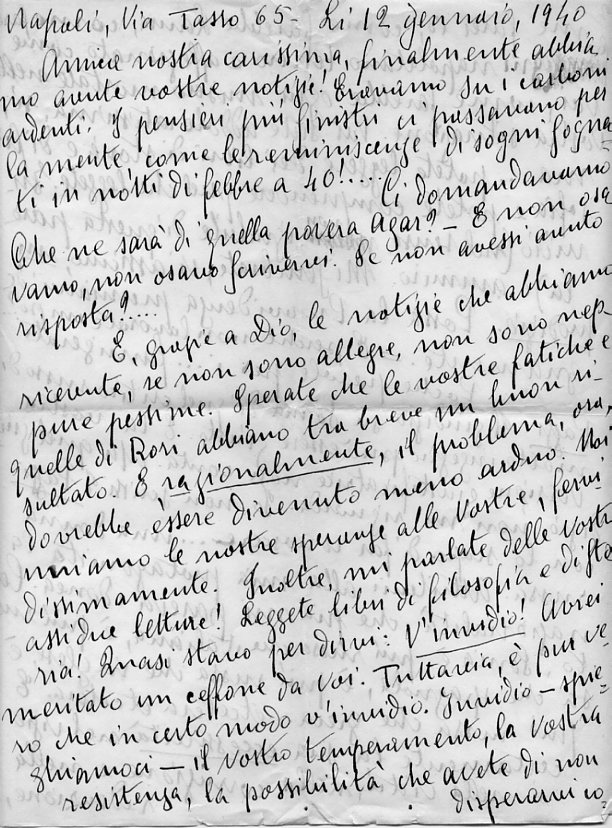 Napoli, Via Tasso 65 - Li 12 gennaio, 1940
Amica nostra carissima, finalmente abbia
mo avute vostre notizie! Eravamo su i carboni
ardenti. I pensieri più sinistri ci passavano per
la mente, come le reminiscenze di sogni sogna
ti in notti di febbre a 40!.... Ci domandavamo
Che ne sarà di quella povera Agar? - E non osa
vamo, non osavo scrivervi. Se non avessi avuto
risposta?....
E, grazie a Dio, le notizie che abbiamo
ricevute, se non sono allegre, non sono nep
pure pessime. Sperate che le vostre fatiche e
quelle di Rori abbiano tra breve un buon ri-
sultato. E ragionalmente, il problema, ora,
dovrebbe essere divenuto meno arduo. Noi
uniamo le nostre speranze alle Vostre, fervi
dissimamente. Inoltre, mi parlate delle Vostre
assidue letture! Leggete libri di filosofia e di sto
ria! Quasi stavo per dirvi: V'invidio! Avrei
meritato un ceffone da Voi. Tuttavia, è pur ve
ro che in certo modo v'invidio. Invidio - spie
ghiamoci - il vostro temperamento, la Vostra
resistenza, la possibilità che avete di non
disperarvi